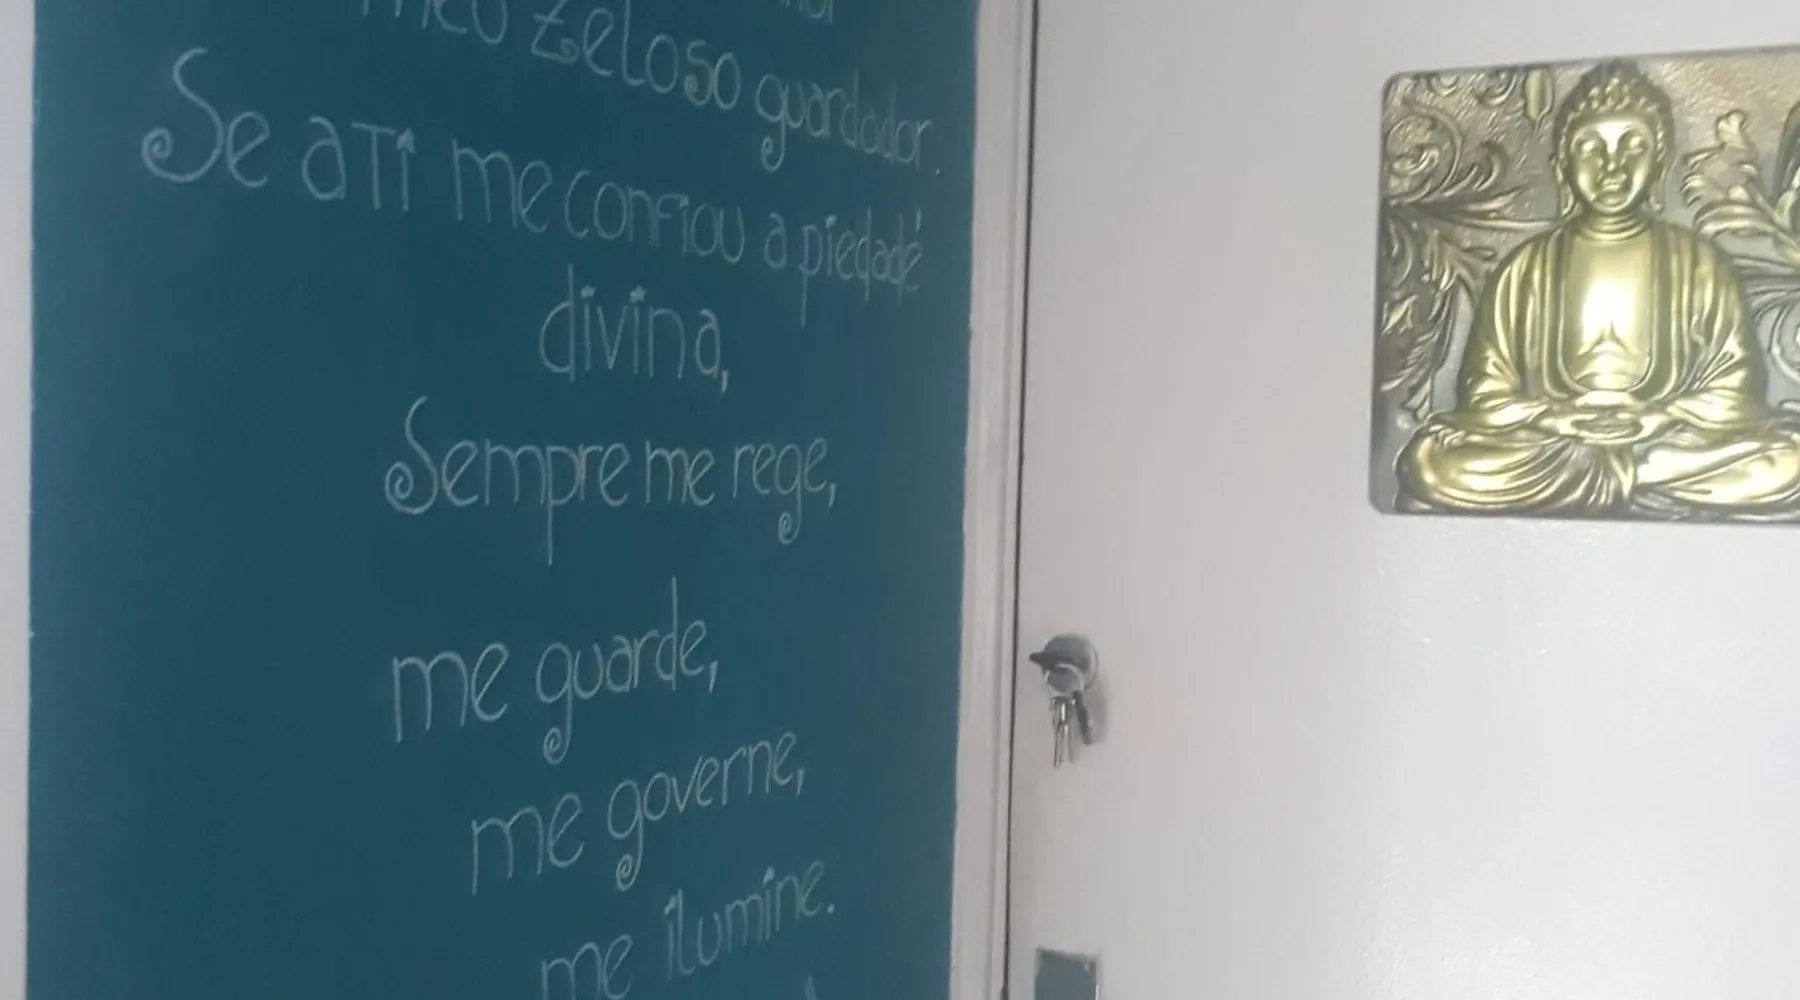 meu zeloso guardador.
Se a Ti me confiou a piedade
divina,
Sempre me rege,
me guarde,
me governe,
me ilumine.